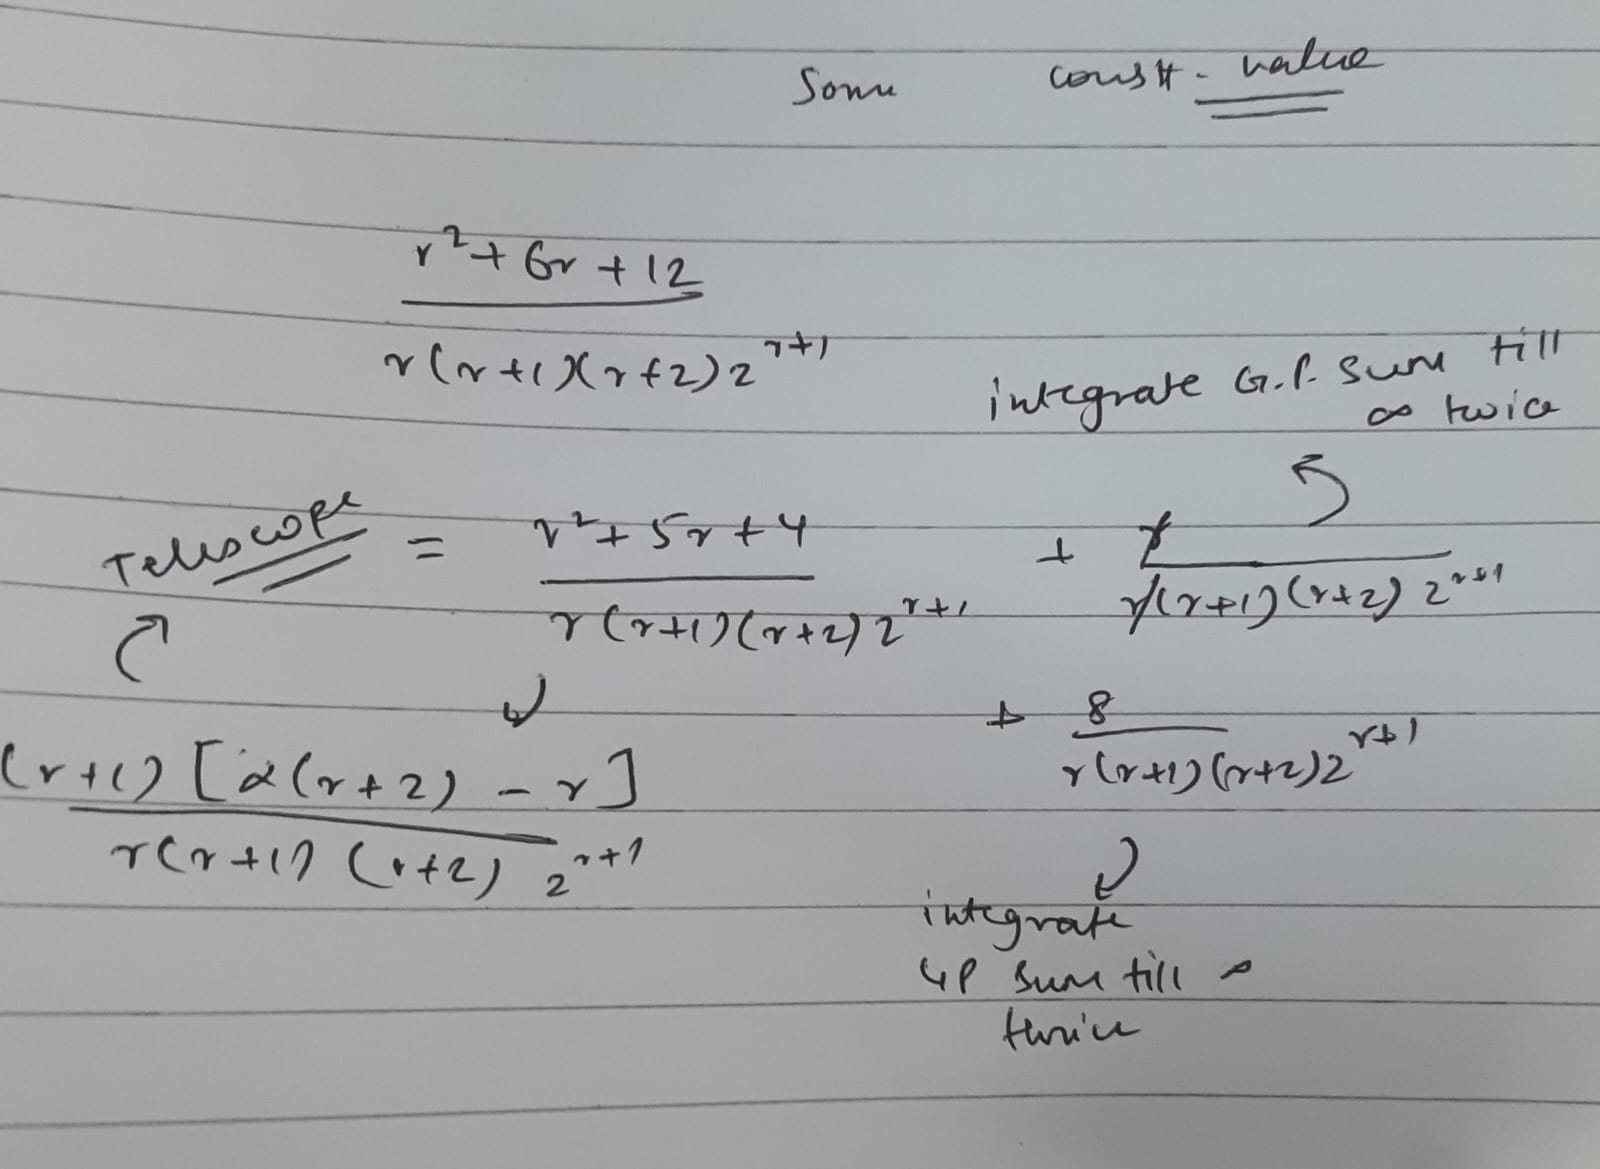 Some const. value
r² + 6r + 12
r(r+1)(r+2)2^(r+1)
integrate G.P. sum till
∞ twice
Telescope = r² + 5r + 4 + r
r(r+1)(r+2)2^(r+1) r(r+1)(r+2)2^(r+1)
+ 8
r(r+1)(r+2)2^(r+1)
(r+1)[2(r+2) - r]
r(r+1)(r+2)2^(r+1)
integrate
GP sum till ∞
thrice